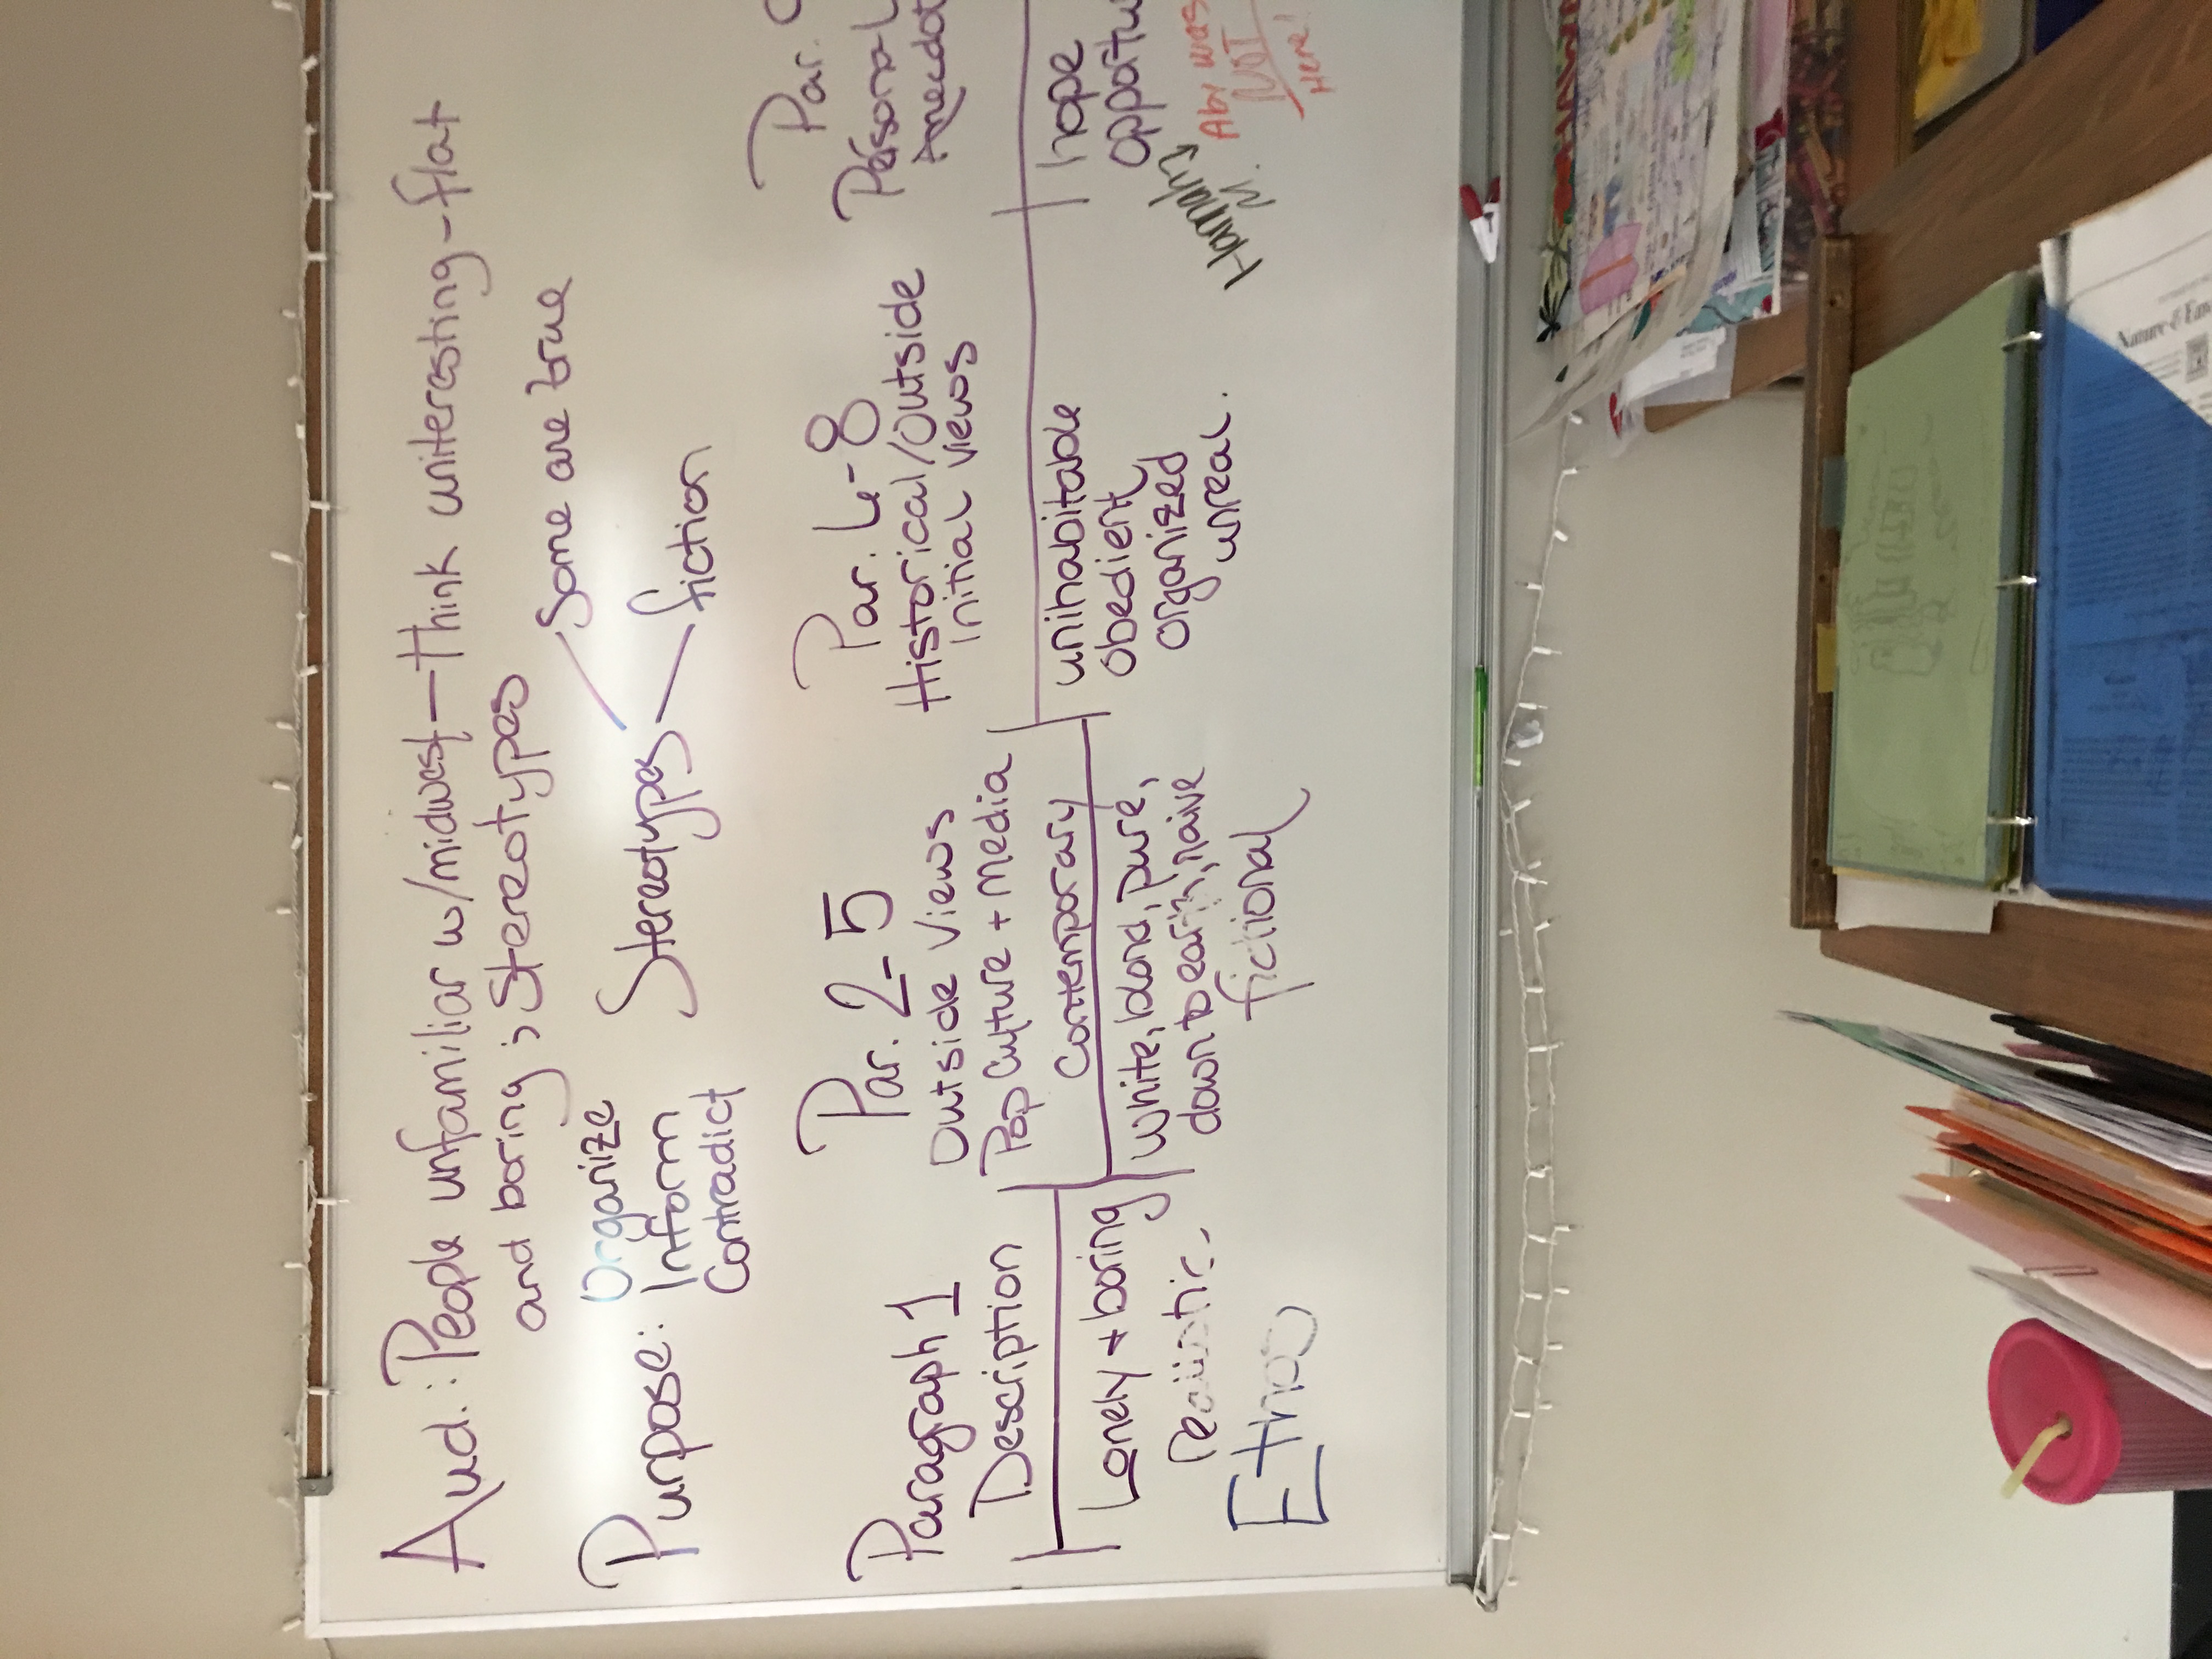 Aud.: People unfamiliar w/midwest—think uniteresting-flat
and boring; stereotypes
Some are true
Purpose: Organize
Inform
Contradict
Stereotypes
fiction
Paragraph 1
Description
Lonely + boring
Ethos
Par. 2-5
Outside Views
Pop Culture + Media
Contemporary
White, bland, pure,
down to earth, naive
fictional
Par. 6-8
Historical/Outside
Initial Views
unihabitable
obedient
organized
unreal.
Par.
Personal
Anecdot
hope
opportu
Hannah
M.
Abi was
NOT
Here!
Nature & Env